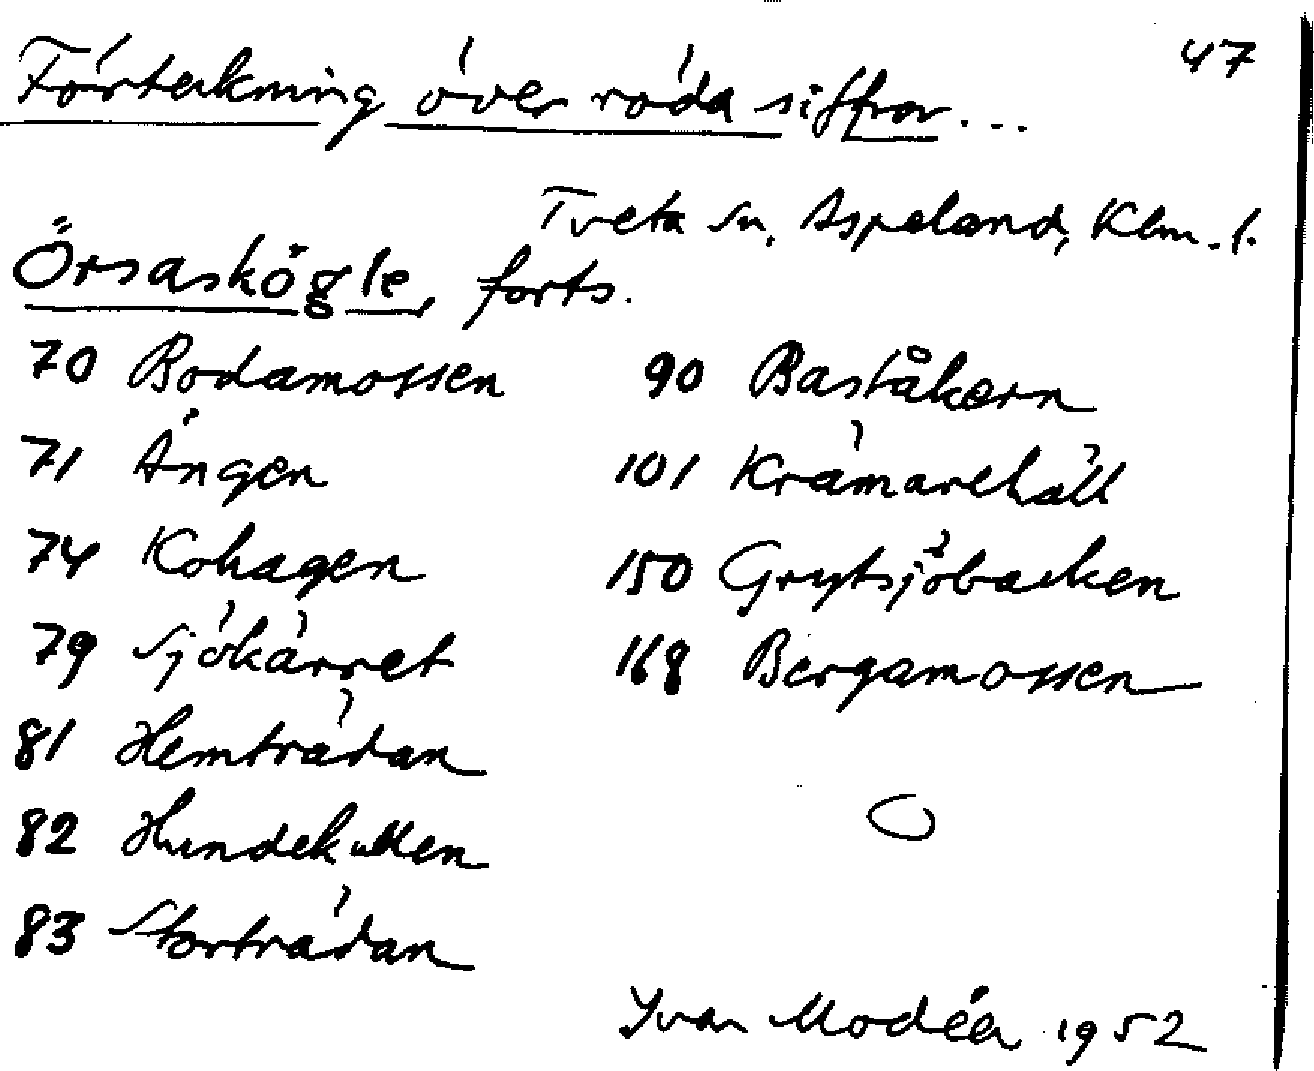 47
Förteckning över röda siffror...
Tveta sn, Aspeland, Klm. l.
Örsaskögle, forts.
70 Bodamossen
71 Ängen
74 Kohagen
79 Sjökärret
81 Hemträdan
82 Hundekullen
83 Storträdan
90 Baståkern
101 Krämarehäll
150 Grytsjöbacken
168 Bergamossen
Yvar Modéer 1952